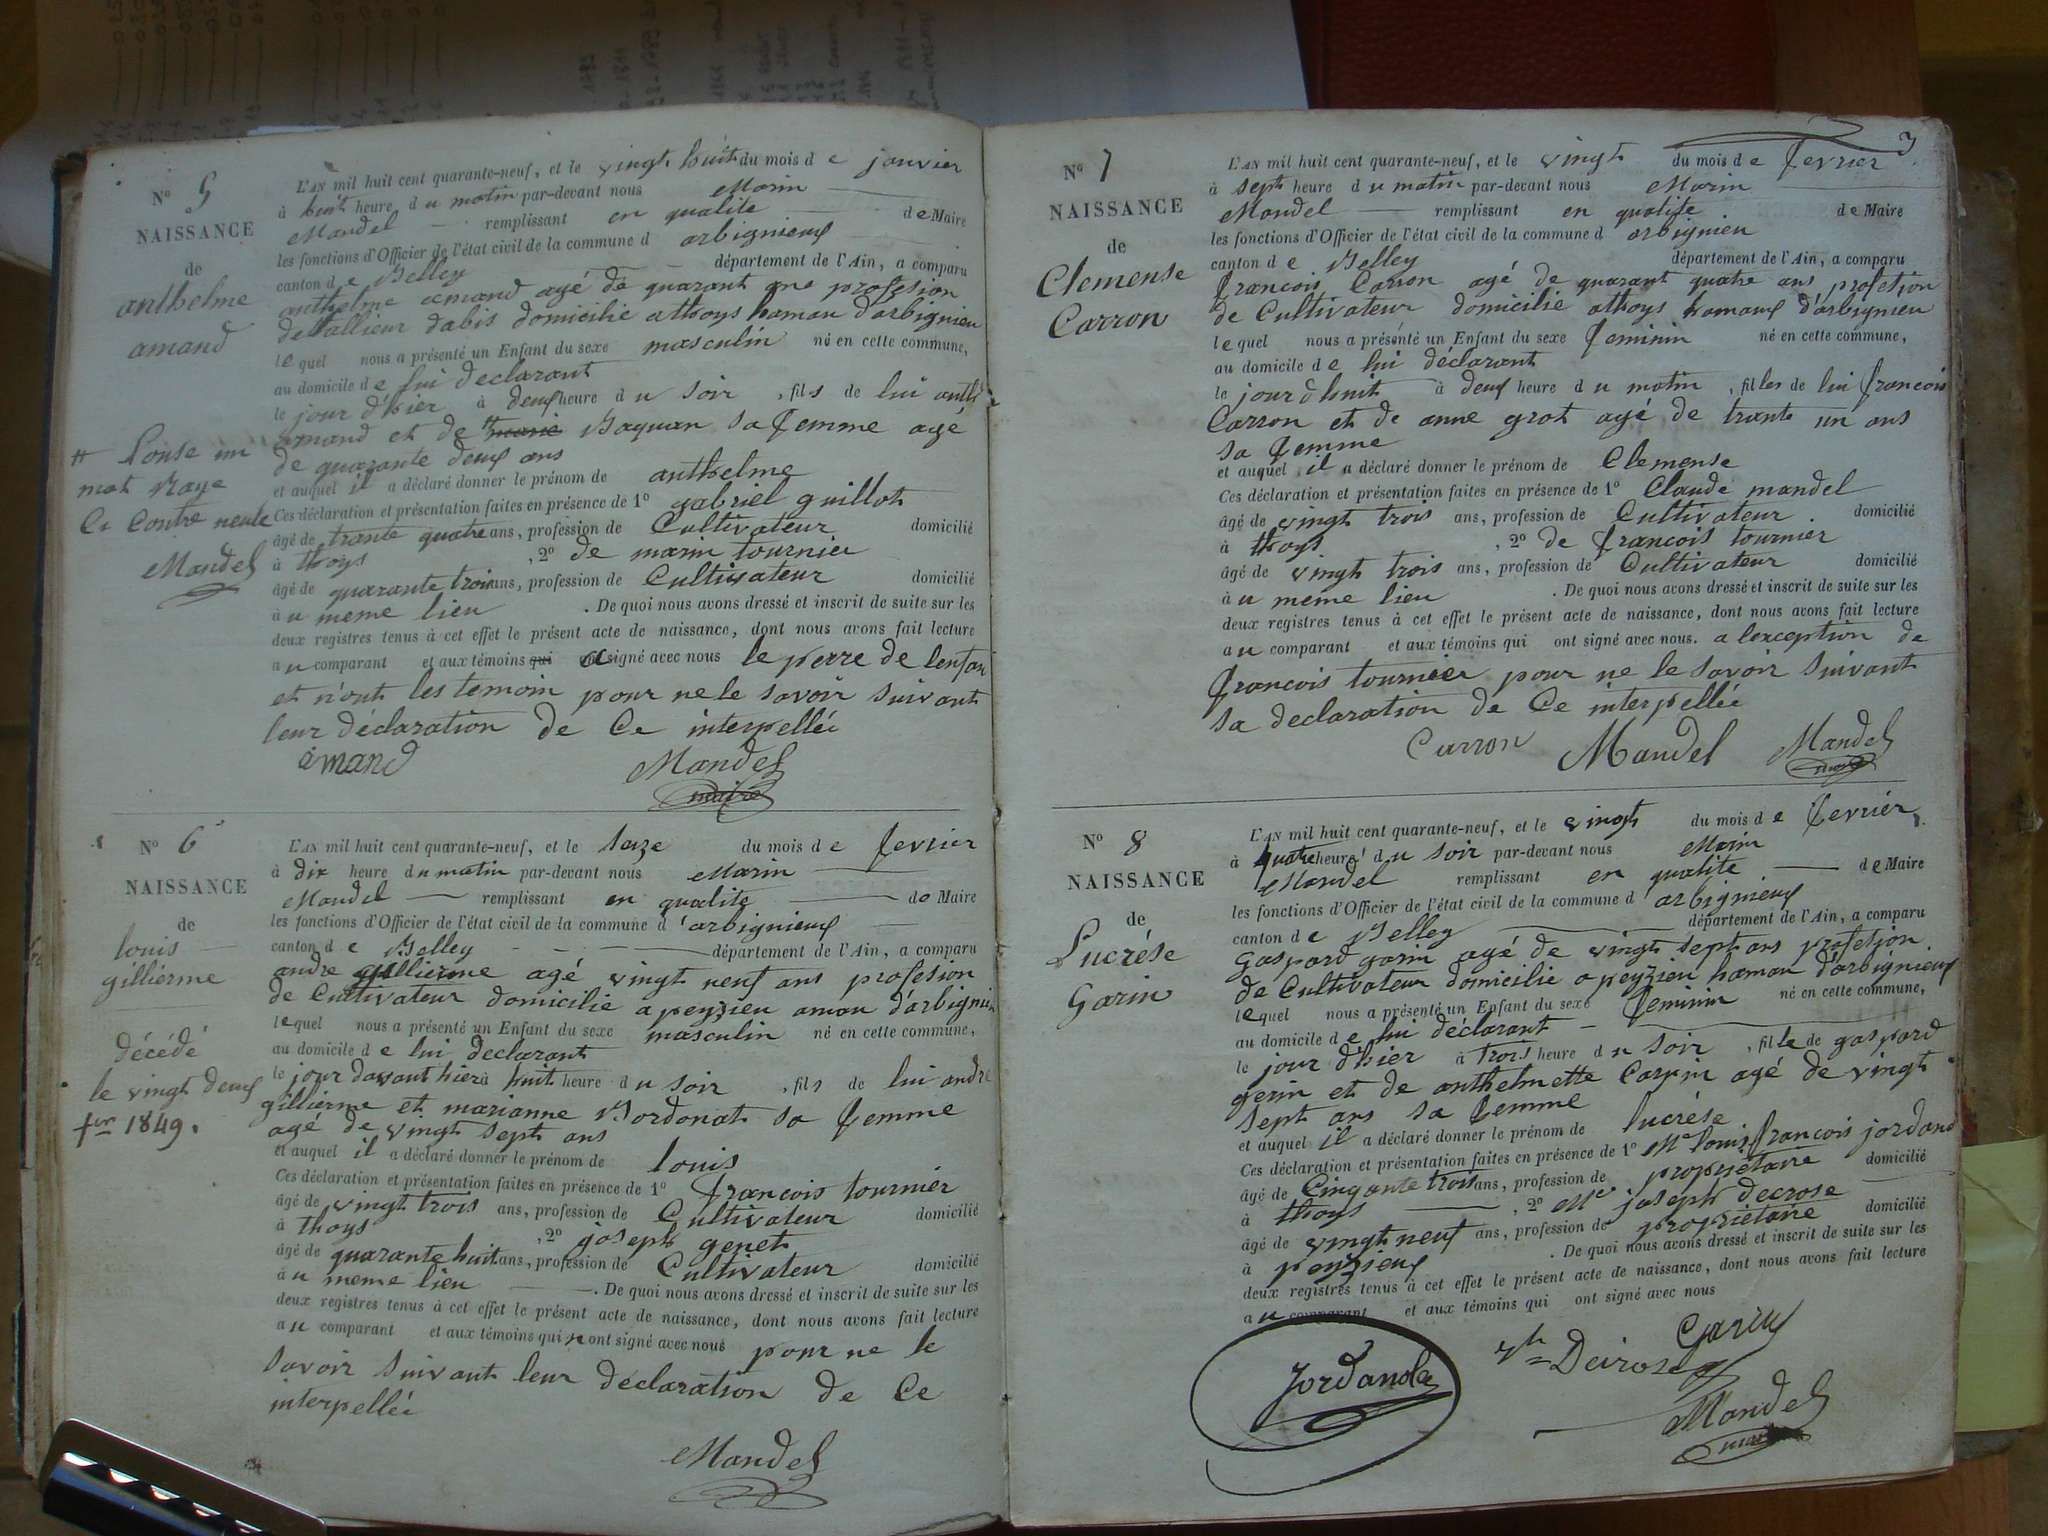 Nº 5
NAISSANCE
de
anthelme
amand
# Pouse un
mot Raye
Ci Contre neule
Mandel
L'AN mil huit cent quarante-neuf, et le vingt huit du mois de janvier
à huit heure du matin par-devant nous Marin
Mandel remplissant en qualite de Maire
les fonctions d'Officier de l'état civil de la commune d arbignieux
canton de Belley département de l'Ain, a comparu
anthelme amand agé de quarant une profesion
de tallieur dabis domicilie a thoys hamau d'arbignieu
lequel nous a présenté un Enfant du sexe masculin né en cette commune,
au domicile de lui declarant
le jour d'hier à deux heure du soir, fils de lui anth
amand et de # marie Baquan sa femme agé
de quarante deux ans
et auquel il a déclaré donner le prénom de anthelme
Ces déclaration et présentation faites en présence de 1º gabriel guillot
âgé de trante quatre ans, profession de Cultivateur domicilié
à thoys, 2º de marin tournier
âgé de quarante trois ans, profession de Cultivateur domicilié
à u meme lieu . De quoi nous avons dressé et inscrit de suite sur les
deux registres tenus à cet effet le présent acte de naissance, dont nous avons fait lecture
au comparant et aux témoins qui a signé avec nous le perre de lenfan
et n'ont les temoin pour ne le savoir suivant
leur déclaration de Ce interpellée
amand Mandel
maire
Nº 6
NAISSANCE
de
louis
gillierme
décédé
le vingt deux
fer 1849.
L'AN mil huit cent quarante-neuf, et le saize du mois de fevrier
à dix heure du matin par-devant nous Marin
Mandel remplissant en qualite de Maire
les fonctions d'Officier de l'état civil de la commune d'arbignieux
canton de Belley département de l'Ain, a comparu
andre gillierme agé vingt neuf ans profesion
de Cultivateur domicilie a peyzieu amau d'arbignieu
lequel nous a présenté un Enfant du sexe masculin né en cette commune,
au domicile de lui declarant
le jour davant hier à huit heure du soir, fils de lui andre
gillierme et marianne Bordonat sa femme
agé de vingt sept ans
et auquel il a déclaré donner le prénom de louis
Ces déclaration et présentation faites en présence de 1º francois tournier
âgé de vingt trois ans, profession de Cultivateur domicilié
à thoys, 2º joseph genet
âgé de quarante huit ans, profession de Cultivateur domicilié
à u meme lieu . De quoi nous avons dressé et inscrit de suite sur les
deux registres tenus à cet effet le présent acte de naissance, dont nous avons fait lecture
au comparant et aux témoins qui n ont signé avec nous pour ne le
savoir suivant leur déclaration de Ce
interpellée
Mandel
3
Nº 7
NAISSANCE
de
Clemense
Carron
L'AN mil huit cent quarante-neuf, et le vingt du mois de fevrier
à sept heure du matin par-devant nous Marin
Mandel remplissant en qualite de Maire
les fonctions d'Officier de l'état civil de la commune d arbignieu
canton de Belley département de l'Ain, a comparu
francois Carron agé de quarant quatre ans profetion
de Cultivateur domicilie athoys hamaux d'arbignieu
lequel nous a présenté un Enfant du sexe feminin né en cette commune,
au domicile de lui déclarant
le jourdhuit à deux heure du matin, filles de lui francois
Carron et de anne grot agé de trante un ans
sa femme
et auquel il a déclaré donner le prénom de Clemense
Ces déclaration et présentation faites en présence de 1º Claude mandel
âgé de vingt trois ans, profession de Cultivateur domicilié
à thoys, 2º de francois tournier
âgé de vingt trois ans, profession de Cultivateur domicilié
à u meme lieu . De quoi nous avons dressé et inscrit de suite sur les
deux registres tenus à cet effet le présent acte de naissance, dont nous avons fait lecture
au comparant et aux témoins qui ont signé avec nous. a lexception de
francois tournier pour ne le savoir suivant
sa declaration de Ce interpellée
Carron Mandel Mandel
maire
Nº 8
NAISSANCE
de
Lucrése
Garin
L'AN mil huit cent quarante-neuf, et le vingt du mois de fevrier
à quatre heure du soir par-devant nous Marin
Mandel remplissant en qualite de Maire
les fonctions d'Officier de l'état civil de la commune d'arbignieux
canton de Belley département de l'Ain, a comparu
gaspard garin agé de vingt sept ans profetion
de Cultivateur domicilie a peyzieu hamau d'arbignieux
lequel nous a présenté un Enfant du sexe feminin né en cette commune,
au domicile de lui déclarant
le jour d'hier à trois heure du soir, fille de gaspard
gerin et de anthelmette agé de vingt
sept ans sa femme
et auquel il a déclaré donner le prénom de lucrése
Ces déclaration et présentation faites en présence de 1º Mr louis francois jordand
âgé de Cinqante trois ans, profession de propriétaire domicilié
à thoys, 2º Mr joseph decrose
âgé de vingt neuf ans, profession de propriétaire domicilié
à peyzieux . De quoi nous avons dressé et inscrit de suite sur les
deux registres tenus à cet effet le présent acte de naissance, dont nous avons fait lecture
au comparant et aux témoins qui ont signé avec nous
Garin
Jordan
Mandel